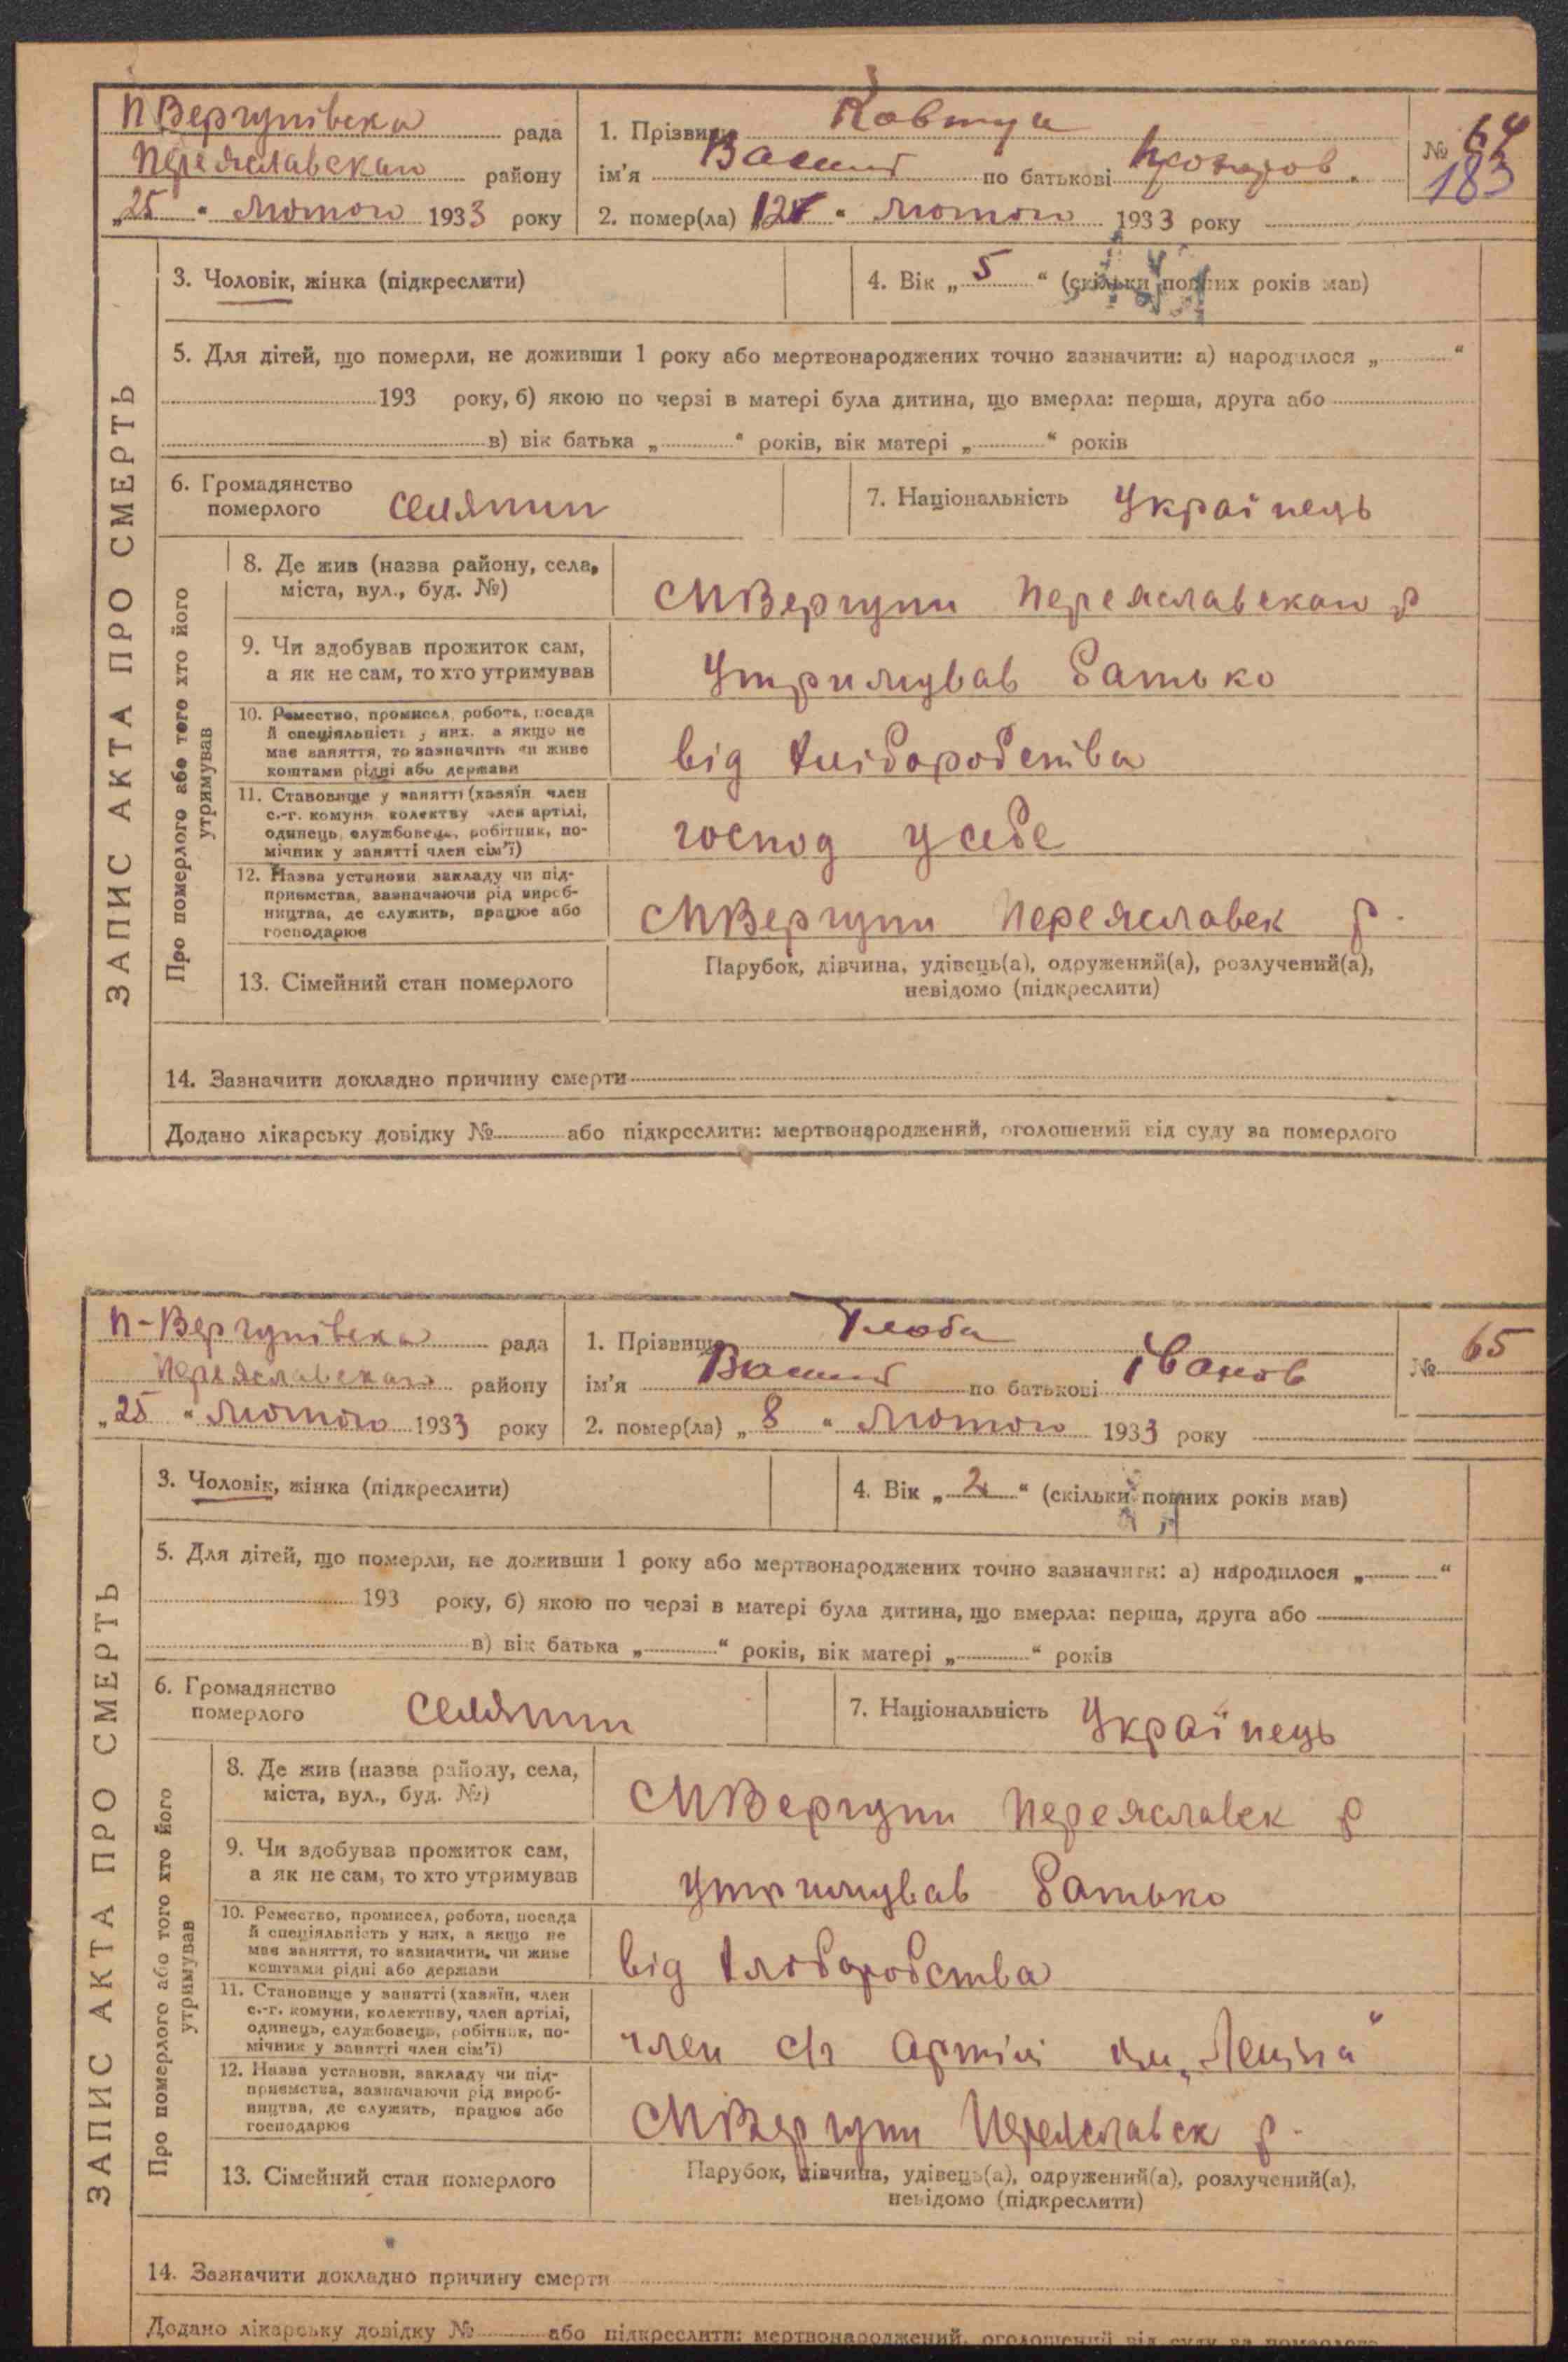 П Вергунівська рада
Переяславского району
„25 “ Лютого 1933 року
1. Прізвище Ковтун
ім'я Василь по батькові
2. помер(ла) лютого 1933 року
№ 64
183
ЗАПИС АКТА ПРО СМЕРТЬ
3. Чоловік, жінка (підкреслити)
4. Вік „ 5 “ (скільки повних років мав)
5. Для дітей, що померли, не доживши 1 року або мертвонароджених точно зазначити: а) народилося „ “
193 року, б) якою по черзі в матері була дитина, що вмерла: перша, друга або
в) вік батька „ “ років, вік матері „ “ років
6. Громадянство
померлого селянин
7. Національність Українець
Про померлого або того хто його
утримував
8. Де жив (назва району, села,
міста, вул., буд. №)
СМВергуни Переяславского р
9. Чи здобував прожиток сам,
а як не сам, то хто утримував
Утримував батько
10. Ремество, промисел, робота, посада
й спеціяльність у них, а якщо не
має заняття, то зазначити чи живе
коштами рідні або держави
від хліборобства
11. Становище у занятті (хазяїн, член
с.-г. комуни, колективу, член артілі,
одинець, службовець, робітник, по-
мічник у занятті член сім'ї)
господ у себе
12. Назва установи, закладу чи під-
приємства, зазначаючи рід вироб-
ництва, де служить, працює або
господарює
СМВергуни Переяславск р.
13. Сімейний стан померлого
Парубок, дівчина, удівець(а), одружений(а), розлучений(а),
невідомо (підкреслити)
14. Зазначити докладно причину смерти
Додано лікарську довідку № або підкреслити: мертвонароджений, оголошений від суду за померлого
П-Вергунівська рада
Переяславского району
„25 “ Лютого 1933 року
1. Прізвище Глоба
ім'я Василь по батькові Іванов
2. помер(ла) „ 8 “ Лютого 1933 року
№ 65
ЗАПИС АКТА ПРО СМЕРТЬ
3. Чоловік, жінка (підкреслити)
4. Вік „ 2 “ (скільки повних років мав)
5. Для дітей, що померли, не доживши 1 року або мертвонароджених точно зазначити: а) народилося „ “
193 року, б) якою по черзі в матері була дитина, що вмерла: перша, друга або
в) вік батька „ “ років, вік матері „ “ років
6. Громадянство
померлого Селянин
7. Національність Українець
Про померлого або того хто його
утримував
8. Де жив (назва району, села,
міста, вул., буд. №)
СМВергуни Переяславск р
9. Чи здобував прожиток сам,
а як не сам, то хто утримував
утримував батько
10. Ремество, промисел, робота, посада
й спеціяльність у них, а якщо не
має заняття, то зазначити, чи живе
коштами рідні або держави
від хліборобства
11. Становище у занятті (хазяїн, член
с.-г. комуни, колективу, член артілі,
одинець, службовець, робітник, по-
мічник у занятті член сім'ї)
член с/г артілі ім. „Леніна“
12. Назва установи, закладу чи під-
приємства, зазначаючи рід вироб-
ництва, де служить, працює або
господарює
СМВергуни Переяславск р.
13. Сімейний стан померлого
Парубок, дівчина, удівець(а), одружений(а), розлучений(а),
невідомо (підкреслити)
14. Зазначити докладно причину смерти
Додано лікарську довідку № або підкреслити: мертвонароджений, оголошений від суду за померлого